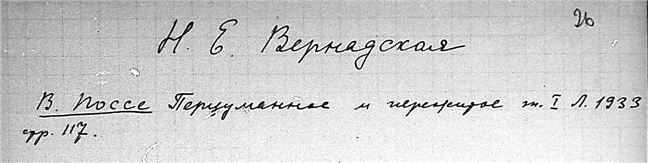 26
Н. Е. Вернадская
В. Поссе Передуманное и пережитое т. I Л. 1933
стр. 117.